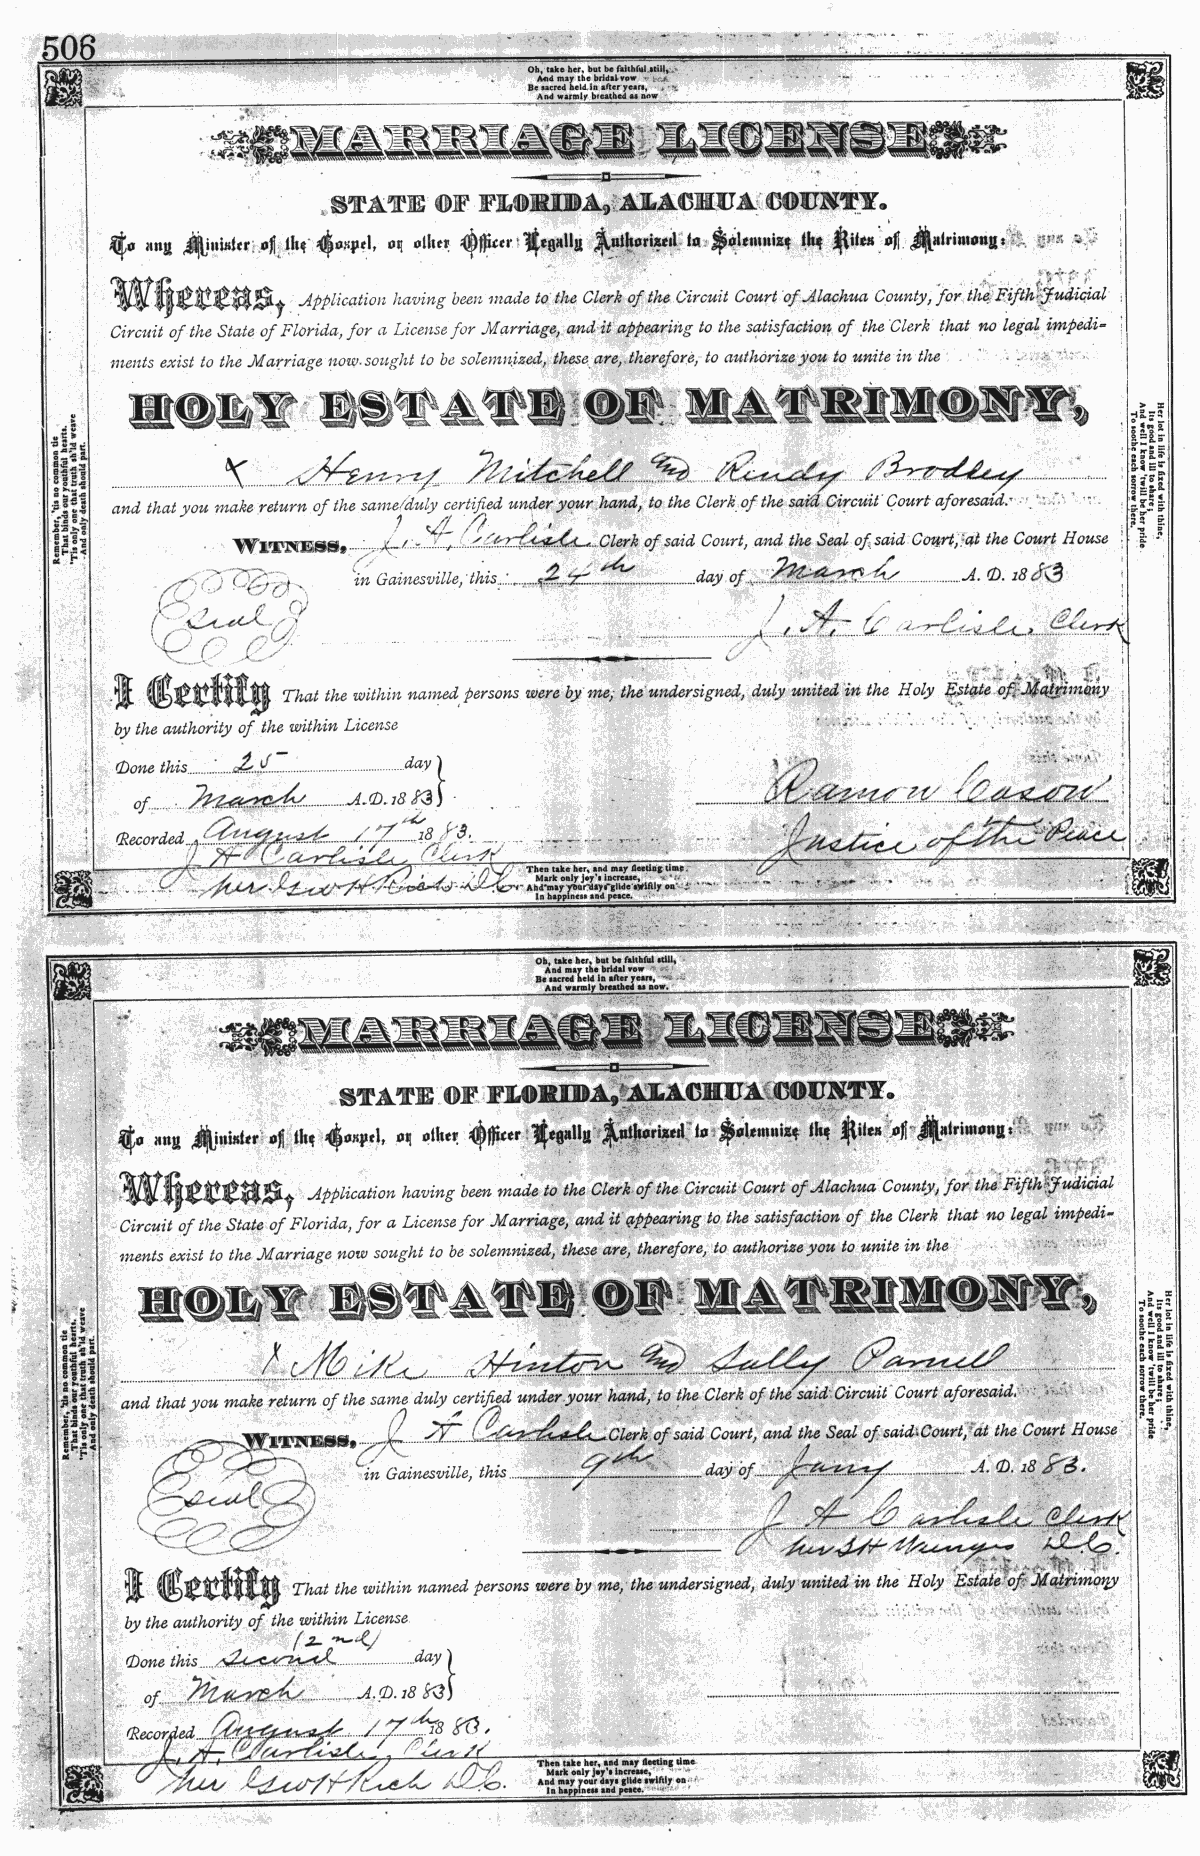 506
Oh, take her, but be faithful still,
And may the bridal vow
Be sacred held in after years,
And warmly breathed as now
MARRIAGE LICENSE
STATE OF FLORIDA, ALACHUA COUNTY.
To any Minister of the Gospel, or other Officer Legally Authorized to Solemnize the Rites of Matrimony:
Whereas, Application having been made to the Clerk of the Circuit Court of Alachua County, for the Fifth Judicial
Circuit of the State of Florida, for a License for Marriage, and it appearing to the satisfaction of the Clerk that no legal impedi-
ments exist to the Marriage now sought to be solemnized, these are, therefore, to authorize you to unite in the
HOLY ESTATE OF MATRIMONY,
x Henry Mitchell and Rindy Brodley
and that you make return of the same duly certified under your hand, to the Clerk of the said Circuit Court aforesaid.
WITNESS, J. A. Carlisle Clerk of said Court, and the Seal of said Court, at the Court House
in Gainesville, this 24th day of March A. D. 1883
Seal
J. A. Carlisle, Clerk
I Certify That the within named persons were by me, the undersigned, duly united in the Holy Estate of Matrimony
by the authority of the within License
Done this 25 day
of March A.D. 1883
Ramon Cason
Recorded August 17th 1883.
Justice of the Peace
J A Carlisle Clerk
Per Geo H Rich D.C.
Then take her, and may fleeting time
Mark only joy's increase,
And may your days glide swiftly on
In happiness and peace.
Remember, 'tis no common tie
That binds our youthful hearts,
'Tis only one that truth sh'ld weave
And only death should part.
Her lot in life is fixed with thine,
Its good and ill to share;
And well I know 'twill be her pride
To soothe each sorrow there.
Oh, take her, but be faithful still,
And may the bridal vow
Be sacred held in after years,
And warmly breathed as now.
MARRIAGE LICENSE
STATE OF FLORIDA, ALACHUA COUNTY.
To any Minister of the Gospel, or other Officer Legally Authorized to Solemnize the Rites of Matrimony:
Whereas, Application having been made to the Clerk of the Circuit Court of Alachua County, for the Fifth Judicial
Circuit of the State of Florida, for a License for Marriage, and it appearing to the satisfaction of the Clerk that no legal impedi-
ments exist to the Marriage now sought to be solemnized, these are, therefore, to authorize you to unite in the
HOLY ESTATE OF MATRIMONY,
x Mike Hinton and Sally Parnell
and that you make return of the same duly certified under your hand, to the Clerk of the said Circuit Court aforesaid.
WITNESS, J A Carlisle Clerk of said Court, and the Seal of said Court, at the Court House
in Gainesville, this 9th day of Jany A. D. 1883.
Seal
J A Carlisle Clerk
Per S H D.C.
I Certify That the within named persons were by me, the undersigned, duly united in the Holy Estate of Matrimony
by the authority of the within License
(2nd)
Done this second day
of March A.D. 1883
Recorded August 17th 1883.
J. A. Carlisle, Clerk
Per Geo H Rich D.C.
Then take her, and may fleeting time
Mark only joy's increase,
And may your days glide swiftly on
In happiness and peace.
Remember, 'tis no common tie
That binds our youthful hearts,
'Tis only one that truth sh'ld weave
And only death should part.
Her lot in life is fixed with thine,
Its good and ill to share;
And well I know 'twill be her pride
To soothe each sorrow there.